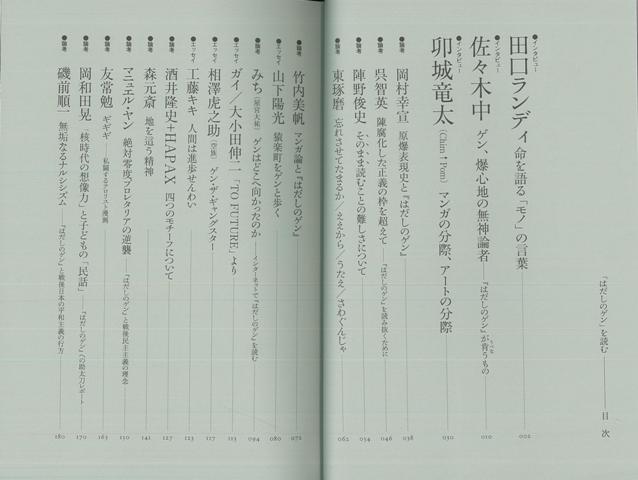 『はだしのゲン』を読む――目次
●インタビュー
田口ランディ 命を語る「モノ」の言葉 002
●インタビュー
佐々木中 ゲン、爆心地の無神論者――『はだしのゲン』が肯うもの 010
うべな
●インタビュー
卯城竜太(Chim↑Pom) マンガの分際、アートの分際 030
●論考
岡村幸宣 原爆表現史と『はだしのゲン』 038
●論考
呉智英 陳腐化した正義の枠を超えて――『はだしのゲン』を読み抜くために 046
●論考
陣野俊史 そのまま読むことの難しさについて 054
●論考
東琢磨 忘れさせてたまるか/ええから/うたえ/さわぐんじゃ 062
●論考
竹内美帆 マンガ論と『はだしのゲン』 072
●エッセイ
山下陽光 猿楽町をゲンと歩く 080
●論考
みち(原宮大祐) ゲンはどこへ向かったのか――インターネットで『はだしのゲン』を読む 094
●エッセイ
ガイ/大小田伸二 「TO FUTURE」より 113
●エッセイ
相澤虎之助(空族) ゲン・ザ・ギャングスター 117
●エッセイ
工藤キキ 人間は進歩せんわい 123
●論考
酒井隆史+HAPAX 四つのモチーフについて 127
●論考
森元斎 地を這う精神 141
●論考
マニュエル・ヤン 絶対零度プロレタリアの逆襲――『はだしのゲン』と戦後民主主義の理念 150
●論考
友常勉 ギギギ――私闘するテロリスト漫画 163
●論考
岡和田晃 「核時代の想像力」と子どもの「民話」――『はだしのゲン』への助太刀レポート 170
●論考
磯前順一 無垢なるナルシシズム――『はだしのゲン』と戦後日本の平和主義の行方 180